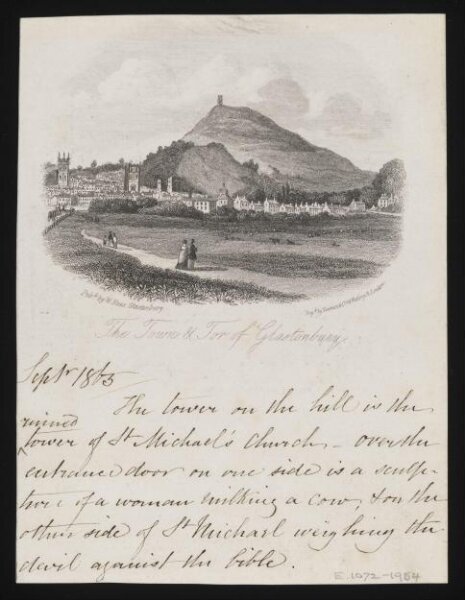 Pubd. by W. Hoar Glastonbury
The Town & Tor of Glastonbury.
Septr 1865
The tower on the hill is the
ruined
tower of St Michael's Church - over the
entrance door on one side is a sculp-
ture of a woman milking a cow, & on the
other side of St Michael weighing the
devil against the bible.
E.1072-1984